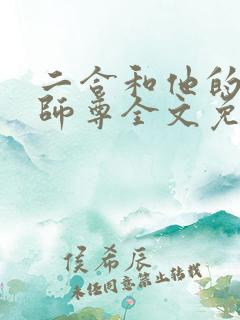 二合和他的
師尊全文免
侯希辰
未经同意禁止转载